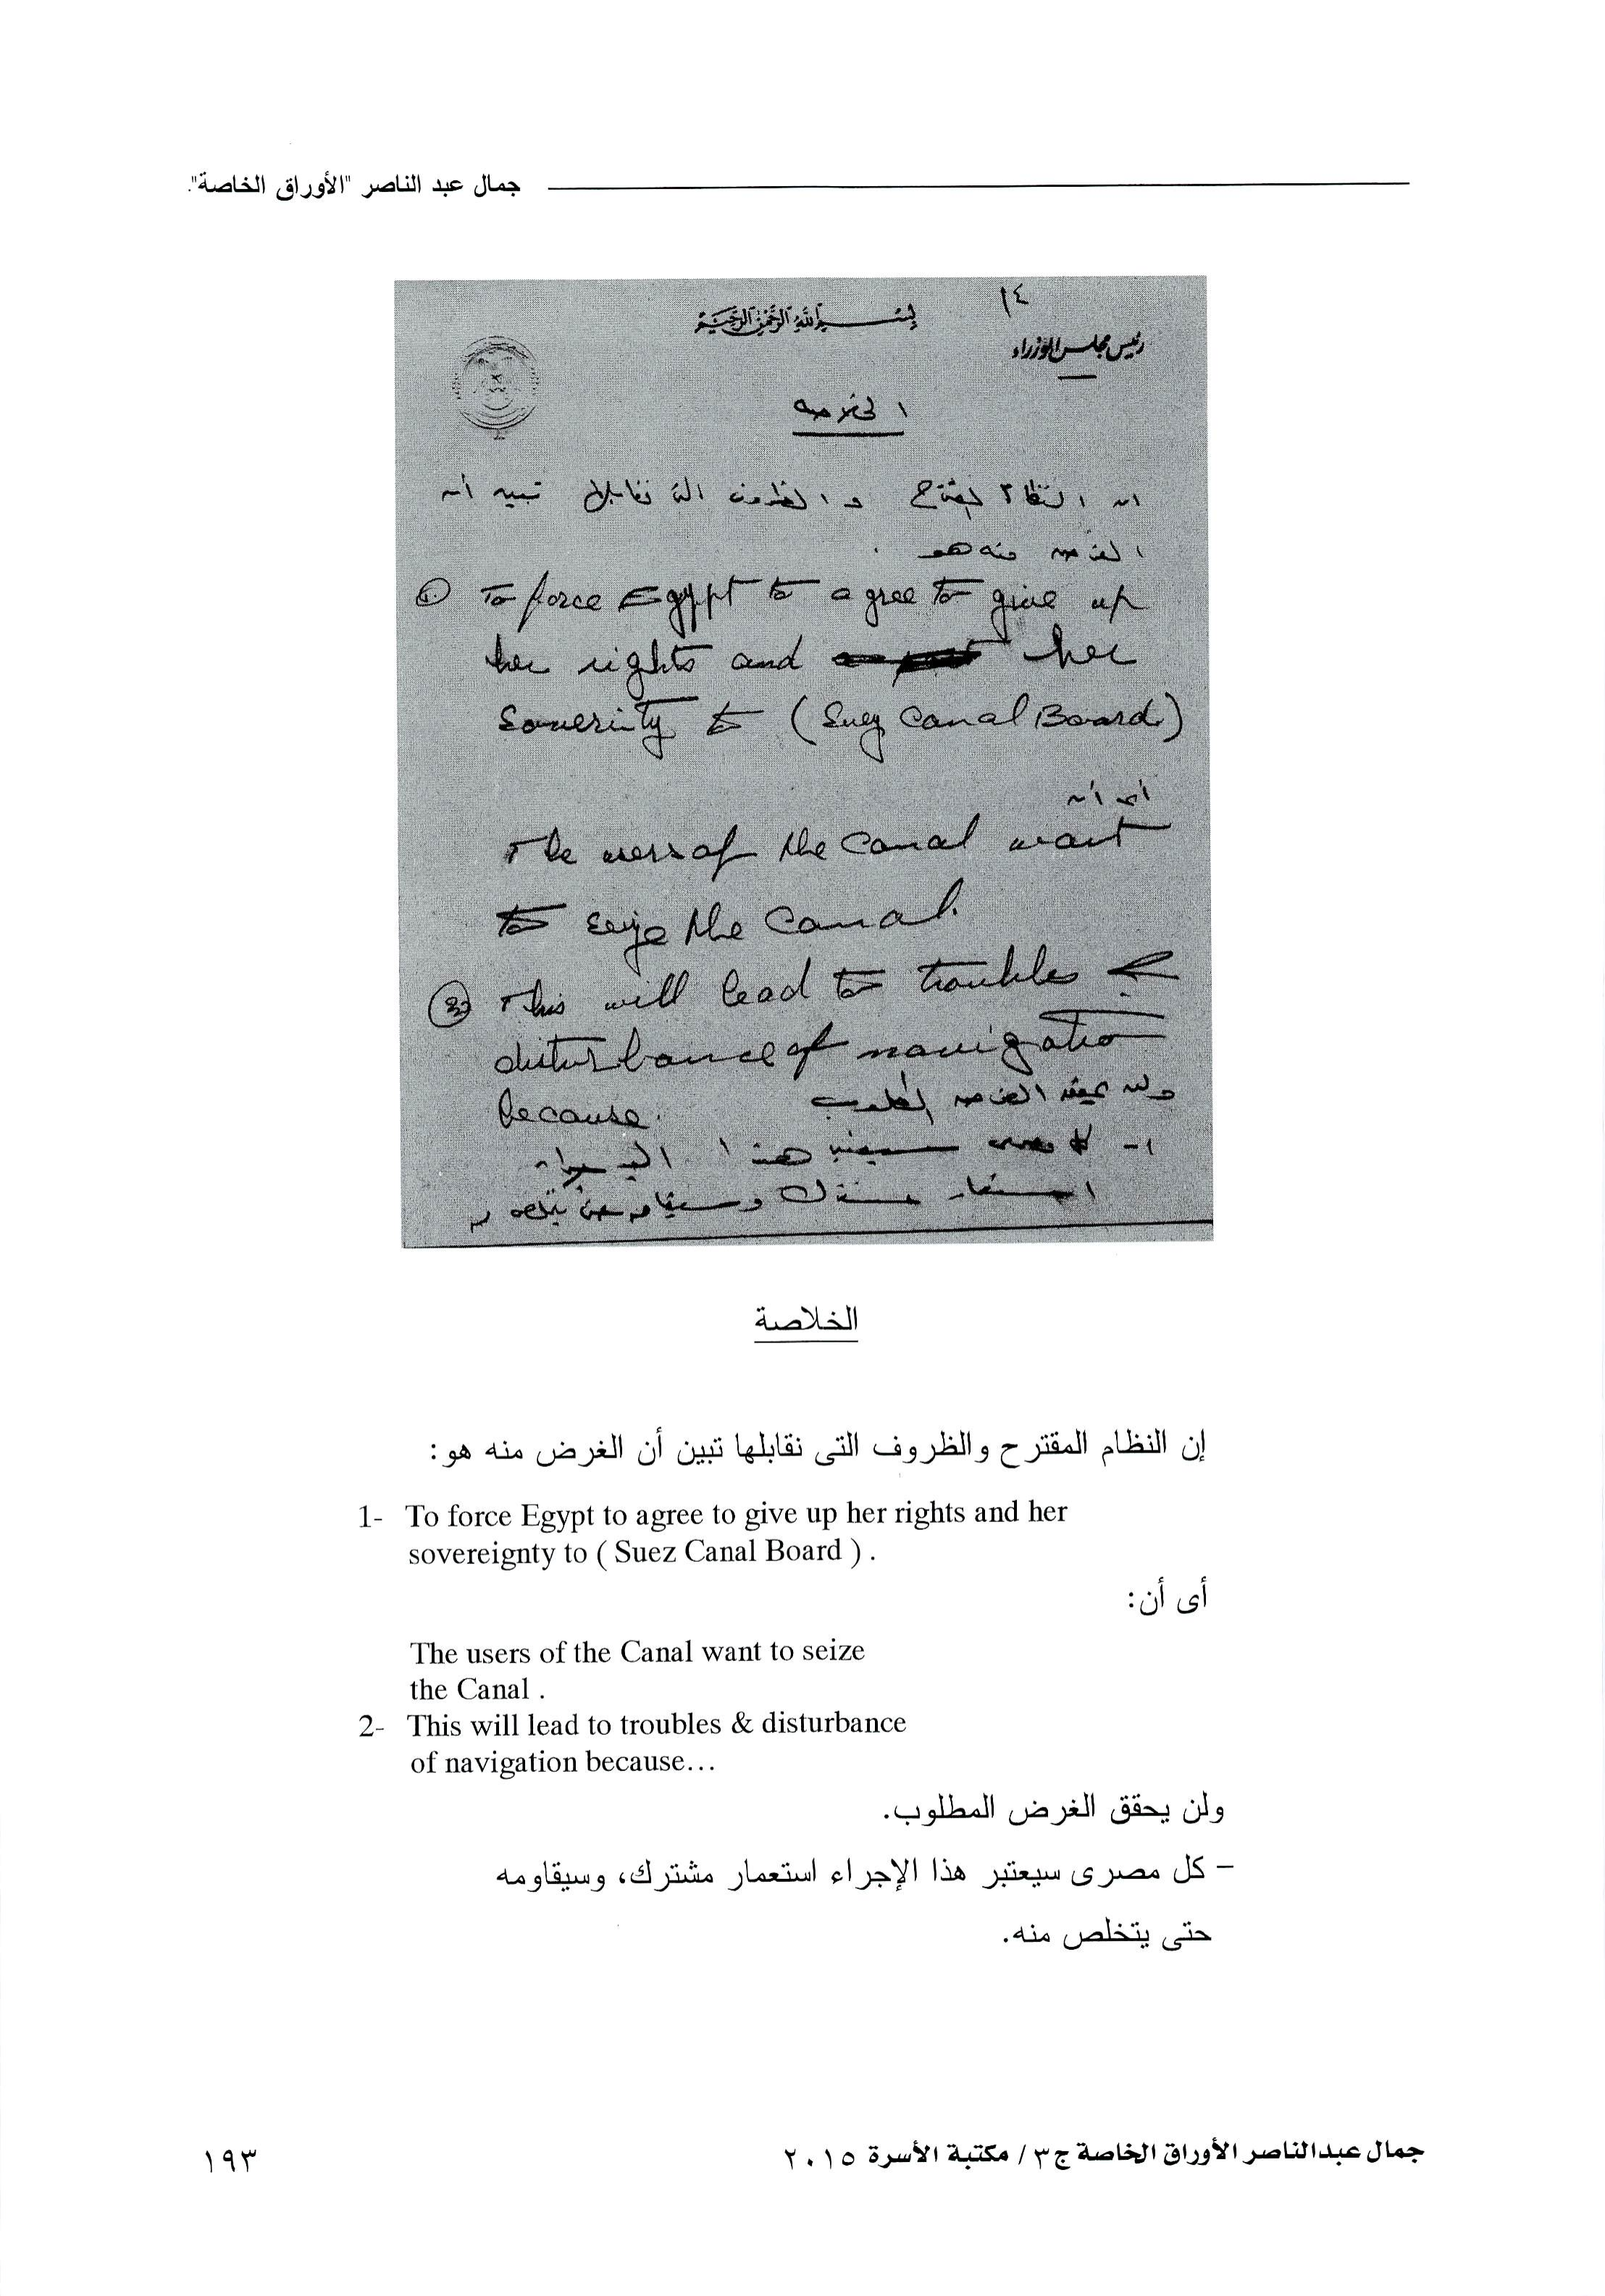 جمال عبد الناصر "الأوراق الخاصة".
١٤
بسم الله الرحمن الرحيم
رئيس مجلس الوزراء
الخلاصه
ان النظام المقترح و الظروف التى نقابلها تبين أن
الغرض منه هو
① To force Egypt to agree to give up
her rights and her
Soverity to (Suez Canal Board)
أى أن
The users of the Canal want
to seize the Canal.
② This will lead to troubles &
disturbance of navigation
because. ولن يحقق الغرض المطلوب
١- كل مصرى سيعتبر هذا الاجراء
استعمار مشترك وسيقاومه حتى يتخلص منه
الخلاصة
إن النظام المقترح والظروف التى نقابلها تبين أن الغرض منه هو:
1- To force Egypt to agree to give up her rights and her
sovereignty to ( Suez Canal Board ) .
أى أن:
The users of the Canal want to seize
the Canal .
2- This will lead to troubles & disturbance
of navigation because…
ولن يحقق الغرض المطلوب.
– كل مصرى سيعتبر هذا الإجراء استعمار مشترك، وسيقاومه
حتى يتخلص منه.
جمال عبدالناصر الأوراق الخاصة ج٣ / مكتبة الأسرة ٢٠١٥
١٩٣